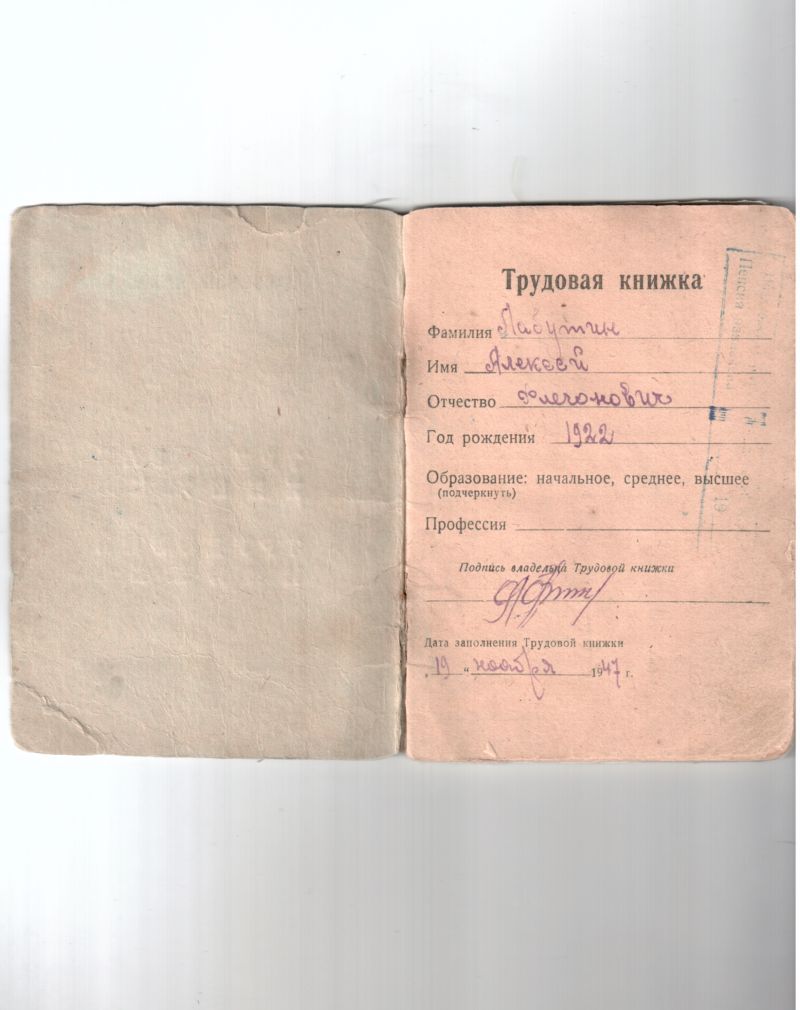 Трудовая книжка
Фамилия Лабутин
Имя Алексей
Отчество Флегонович
Год рождения 1922
Образование: начальное, среднее, высшее
(подчеркнуть)
Профессия
Подпись владельца Трудовой книжки
Дата заполнения Трудовой книжки
„19“ ноября 1947 г.
Пенсия
19